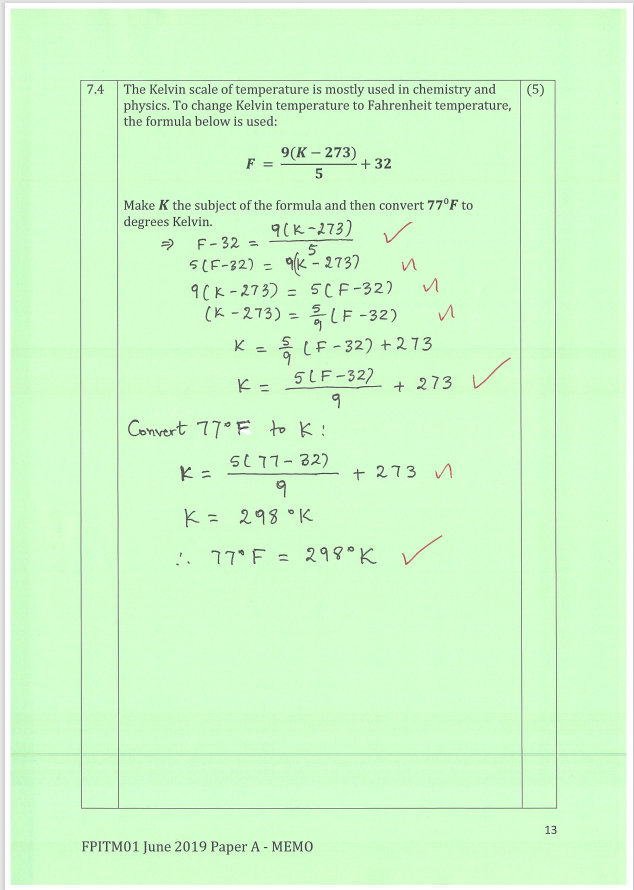 7.4 The Kelvin scale of temperature is mostly used in chemistry and (5)
physics. To change Kelvin temperature to Fahrenheit temperature,
the formula below is used:
F = 9(K − 273)/5 + 32
Make K the subject of the formula and then convert 77⁰F to
degrees Kelvin.
⇒ F-32 = 9(K-273)/5 ✓
5(F-32) = 9(K-273)
9(K-273) = 5(F-32)
(K-273) = 5/9 (F-32)
K = 5/9 (F-32) + 273
K = 5(F-32)/9 + 273 ✓
Convert 77°F to K:
K = 5(77-32)/9 + 273
K = 298°K
∴ 77°F = 298°K ✓
13
FPITM01 June 2019 Paper A - MEMO